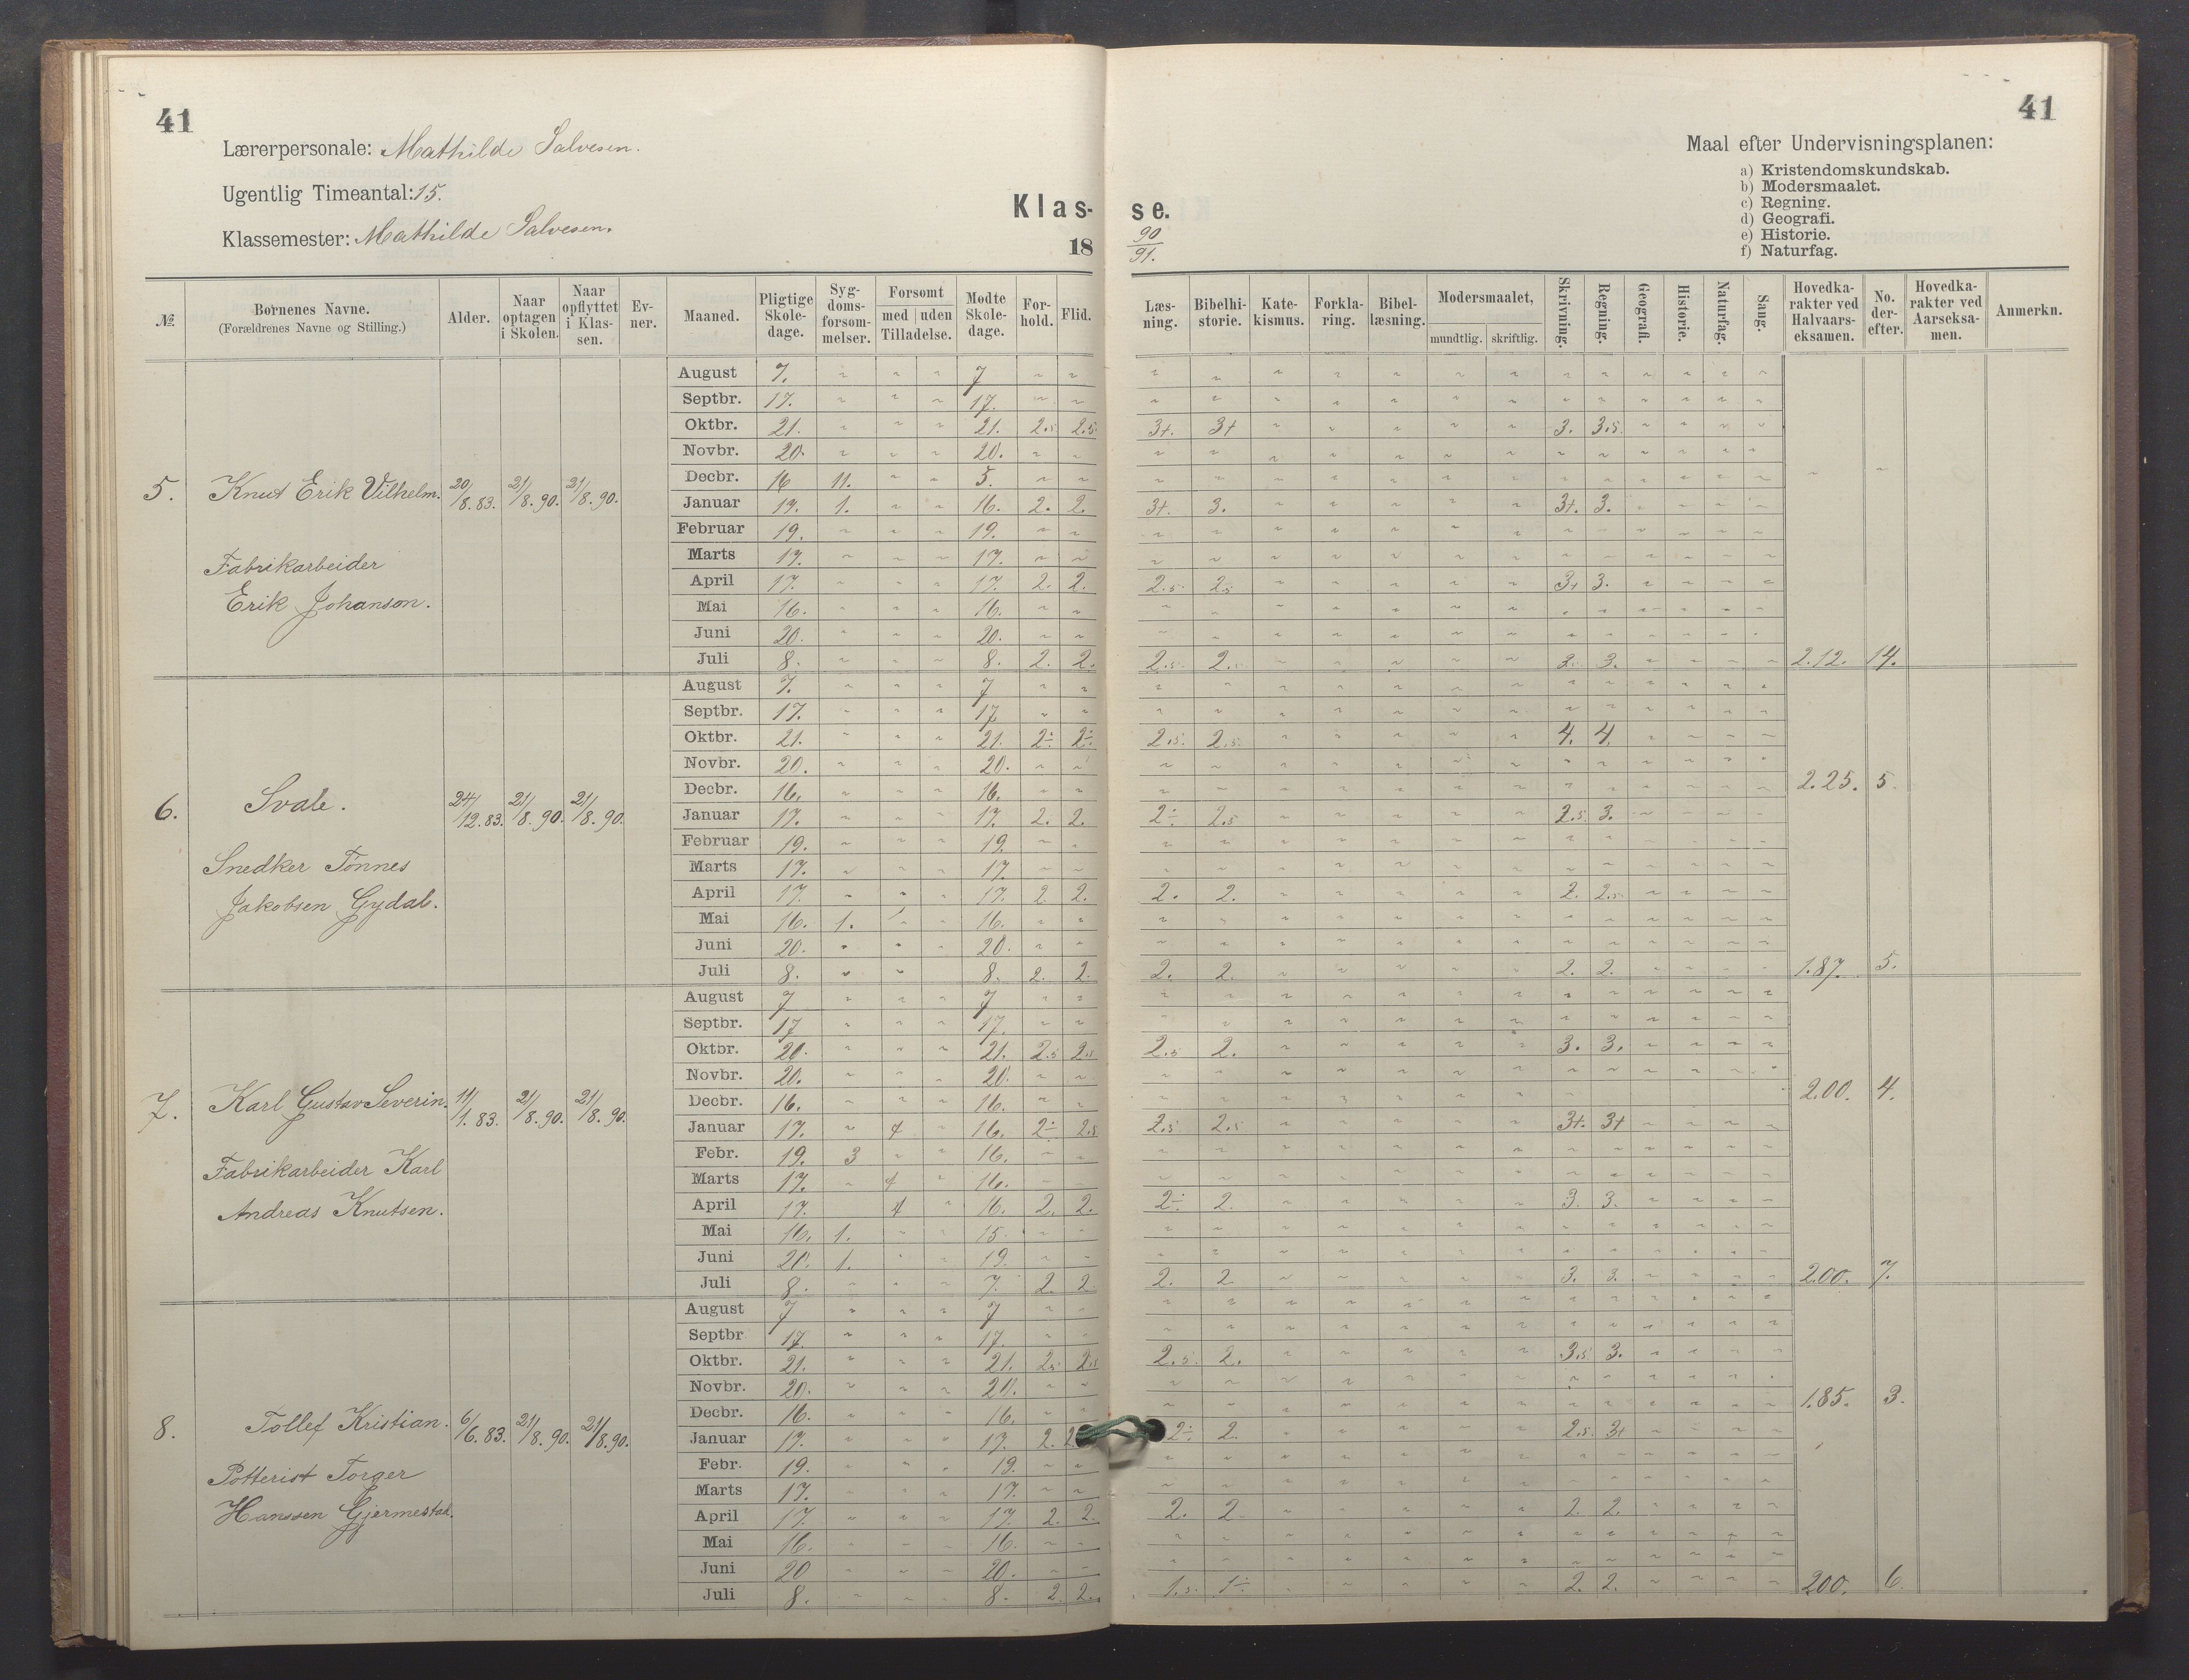 41
41
Lærerpersonale: Mathilde Salvesen.
Ugentlig Timeantal: 15.
Klassemester: Mathilde Salvesen.
Klas-
se.
18
90/91.
Maal efter Undervisningsplanen:
a) Kristendomskundskab.
b) Modersmaalet.
c) Regning.
d) Geografi.
e) Historie.
f) Naturfag.
№ Børnenes Navne. (Forældrenes Navne og Stilling.) Alder. Naar optagen i Skolen. Naar opflyttet i Klassen. Ev-ner. Maaned. Pligtige Skole-dage. Syg-doms-forsøm-melser. Forsømt med uden Tilladelse. Mødte Skole-dage. For-hold. Flid. Læs-ning. Bibelhi-storie. Kate-kismus. Forkla-ring. Bibel-læsning. Modersmaalet, mundtlig. skriftlig. Skrivning. Regning. Geografi. Historie. Naturfag. Sang. Hovedka-rakter ved Halvaars-eksamen. No. der-efter. Hovedka-rakter ved Aarseksa-men. Anmerkn.
August 7. 7
Septbr. 17. 17.
Oktbr. 21. 21. 2.5 2.5 3+. 3+ 3. 3.5.
Novbr. 20. 20.
5. Knut Erik Vilhelm. 20/8.83. 21/8.90. 21/8.90.
Decbr. 16 11. 5.
Januar 17. 1. 16. 2. 2. 3+. 3. 3+. 3.
Februar 19. 19.
Marts 17. 17.
Fabrikarbeider
April 17. 17. 2. 2. 2.5. 2.5 3+ 3.
Erik Johanson.
Mai 16. 16.
Juni 20. 20.
Juli 8. 8. 2. 2. 2.5. 2.5. 3. 3. 2.12. 14.
August 7. 7
Septbr. 17. 17
Oktbr. 21. 21. 2÷ 2÷ 2.5. 2.5. 4. 4.
Novbr. 20. 20.
2.25. 5.
Decbr. 16. 16.
6. Svale. 24/12.83. 21/8.90. 21/8.90.
Januar 17. 17. 2. 2. 2÷ 2.5 2.5. 3.
Februar 19. 19.
Snedker Tønnes
Marts 17. 17.
Jakobsen Gydal.
April 17. 17. 2 2. 2. 2. 2. 2.5.
Mai 16. 1. 16.
Juni 20. 20.
Juli 8. 8. 2. 2. 2. 2. 2. 2. 1.87. 5.
August 7 7
Septbr. 17 17.
Oktbr. 20. 21. 2.5 2.5 2.5 2. 3. 3.
Novbr. 20. 20.
2.00. 4.
7. Karl Gustav Severin. 11/1.83. 21/8.90. 21/8.90.
Decbr. 16. 16.
Januar 17. 16. 2÷ 2.5 2.5 2.5 3+. 3+
Febr. 19. 3 16.
Fabrikarbeider Karl
Marts 17. 16.
Andreas Knutsen.
April 17. 16. 2. 2. 2÷ 2. 3. 3.
Mai 16. 1. 15.
Juni 20. 1. 19.
Juli 8. 7. 2. 2. 2. 2. 3. 3. 2.00. 7.
August 7 7
Septbr 17. 17.
Oktbr. 21. 21. 2.5. 2.5 2.5. 2. 3.5. 3.
Novbr. 20. 20.
1.85. 3.
Decbr. 16. 16.
8. Tollef Kristian. 6/6.83. 21/8.90. 21/8.90.
Januar 17. 17. 2. 2 2÷. 2. 2.5. 3+
Febr. 19. 19.
Potterist Torger
Marts 17. 17.
Hanssen Gjermestad.
April 17. 17. 2. 2. 2. 2. 2. 2.
Mai 16. 16.
Juni 20 20.
Juli 8. 8. 2. 2. 1.5. 1÷ 2. 2. 200. 6.